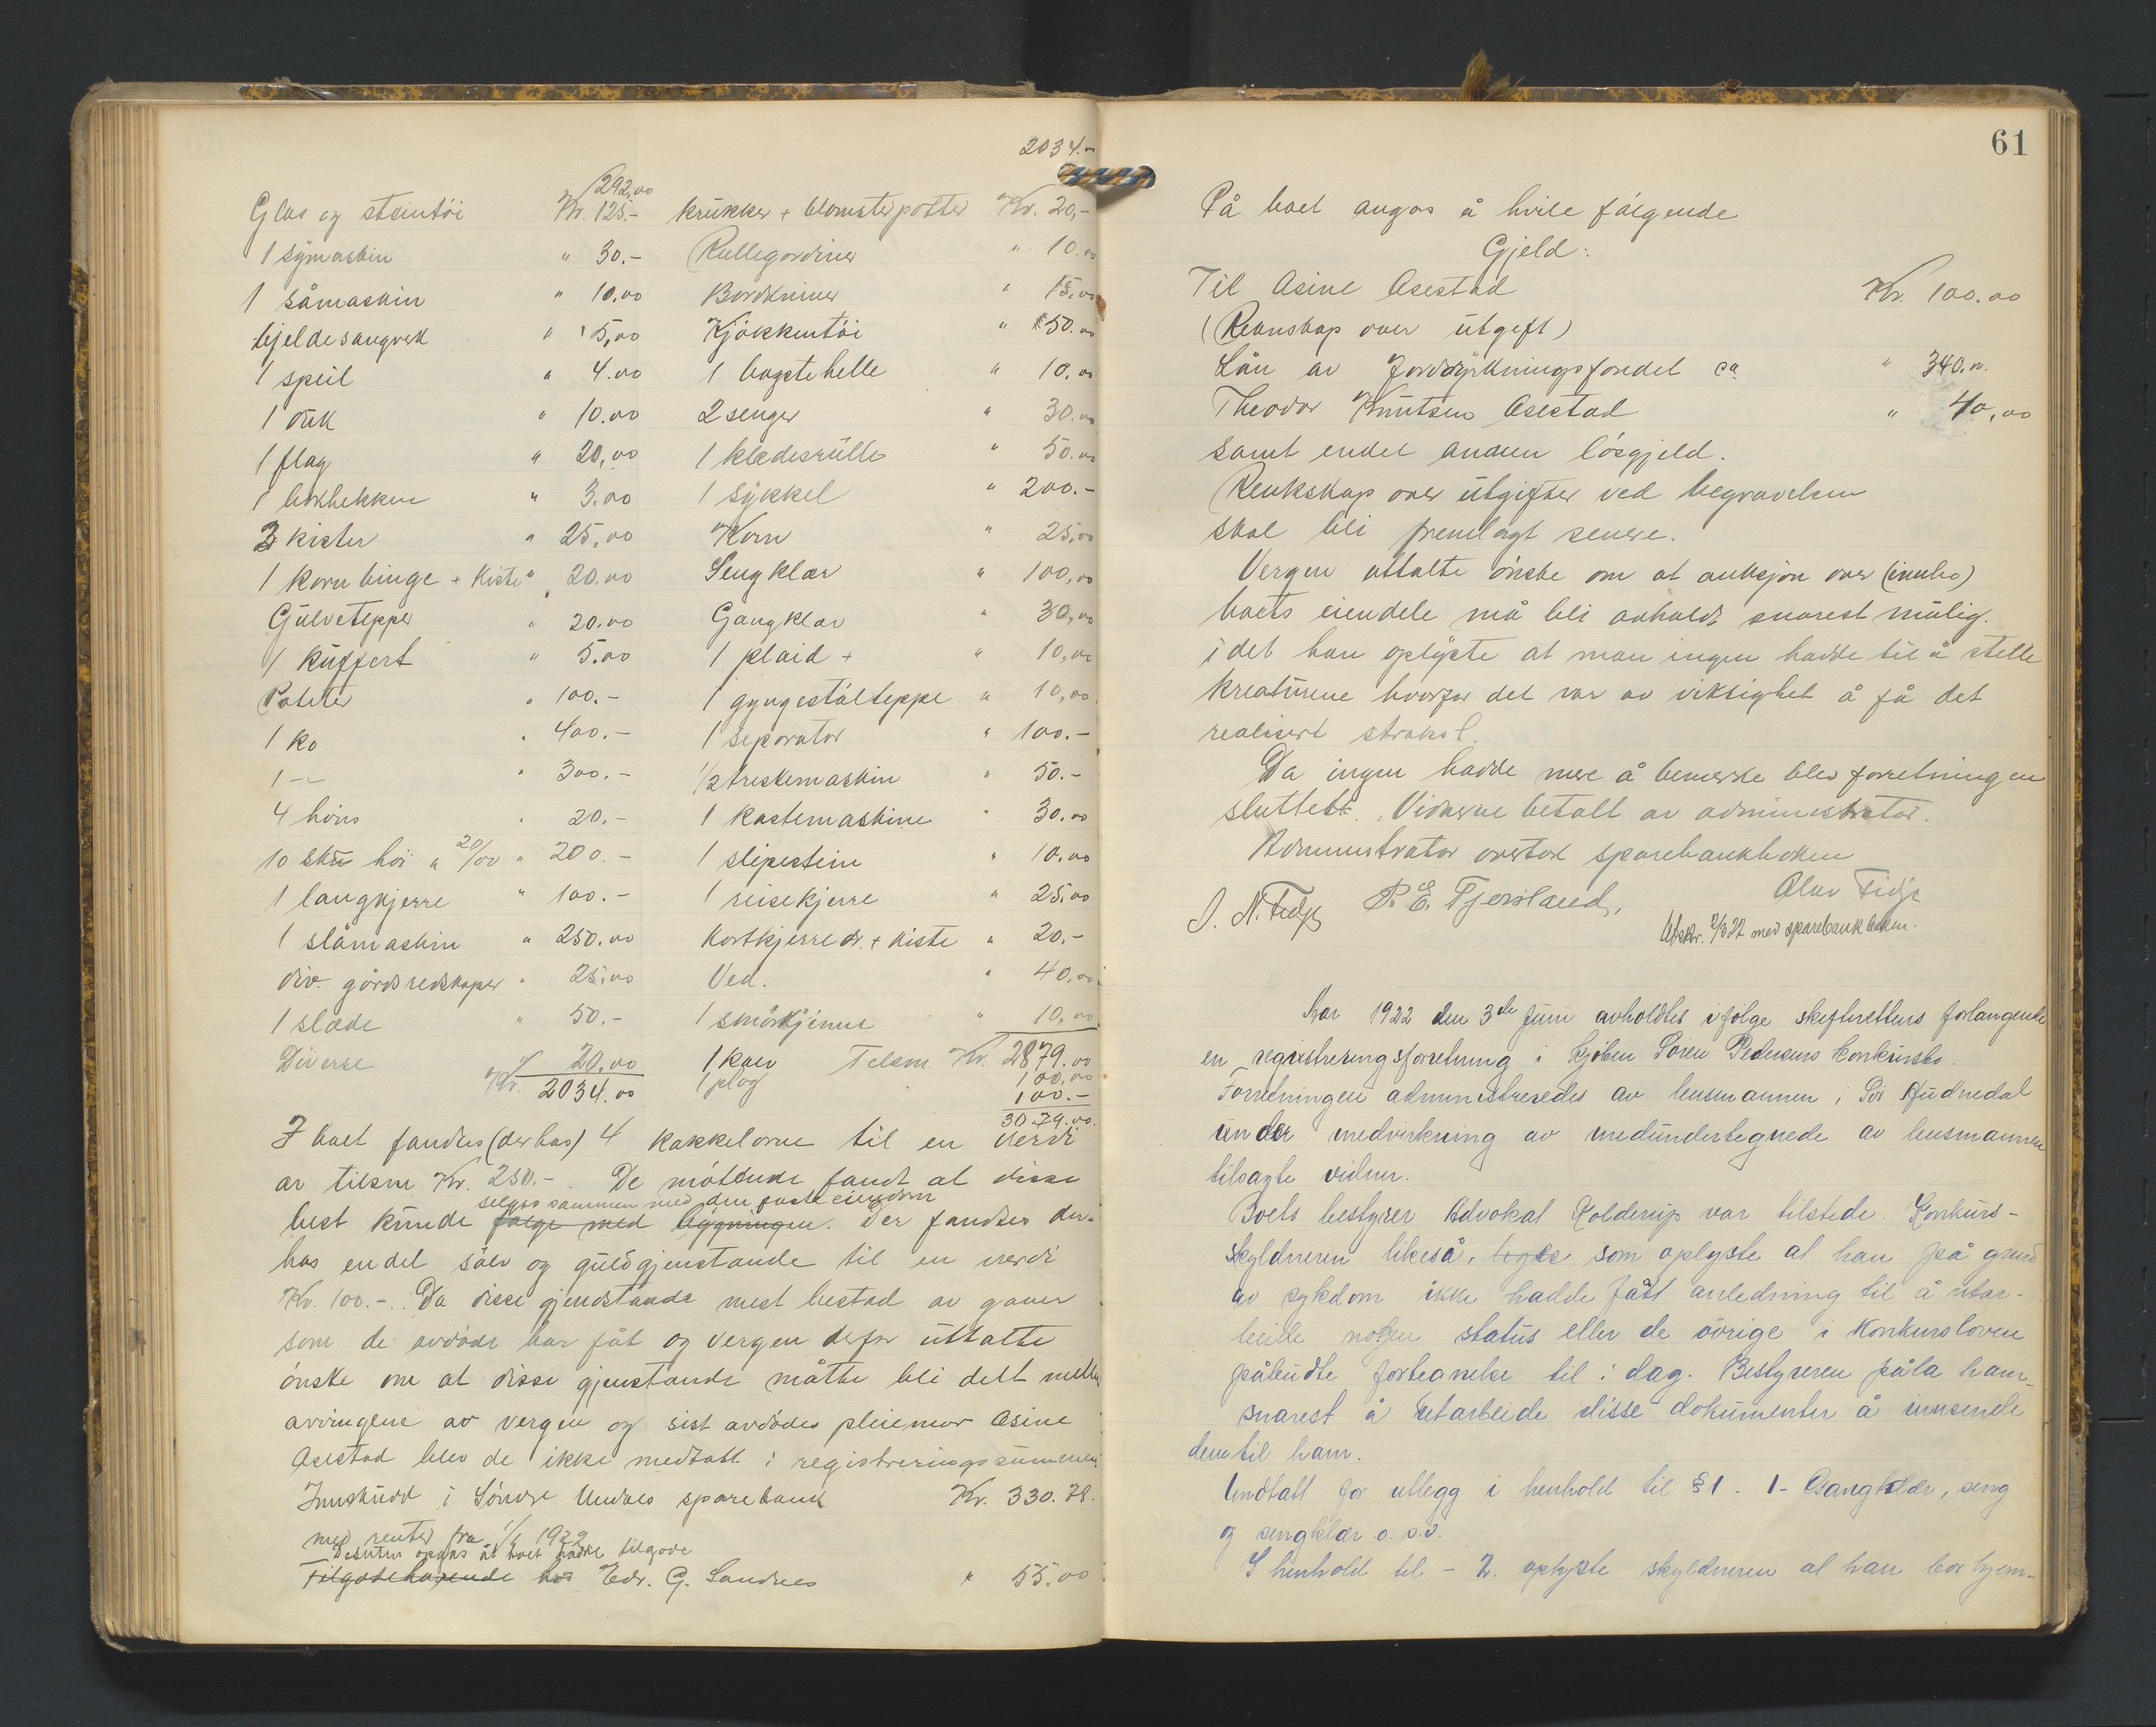 2034.00
292,00
Glas og steintöi Kr. 125.- Krukker + blomsterpotter Kr. 20,-
1 symaskin " 30.- Rullegardiner " 10.00
1 såmaskin " 10.00 Bordkniver " 15,00
bjeldesaugverk " 5,00 Kjökkentöi " 50.00
1 speil " 4.00 1 bagstehelle " 10.00
1 duk " 10.00 2 senger " 30.00
1 flag " 20,00 1 klædesrulle " 50.00
1 " 3.00 1 sykkel " 200.-
3 kister " 25,00 Korn " 25,00
1 kornbinge + kiste " 20.00 Sengklær " 100,00
Gulvtepper " 20.00 Gangklær " 30,00
1 kuffert " 5.00 1 plaid + " 10,00
Poteter " 100.- 1 gyngestolteppe " 10,00
1 ko " 400.- 1 seperator " 100.-
1 -"- " 300.- 1/2 treskemaskin " 50.-
4 höns " 20.- 1 kastemaskine " 30.00
10 skü höi a 20/00 " 200.- 1 slipestein " 10.00
1 langkjerre " 100.- 1 reisekjerre " 25.00
1 slåmaskin " 250.00 Kortkjerre dr. + kiste " 20.-
div. gårdsredskaper " 25,00 Ved. " 40,00
1 slæde " 50.- 1 smörkjerne " 10,00
Diverse " 20,00 1 kalv Tilsm. Kr. 2879.00
Kr. 2034.00 1 plog 100.00
100.-
3079.00.
I boet fandtes (derhos) 4 kakkelovne til en verdi
av tilsm Kr. 250.-. De mötende fandt at disse
selges sammen med den faste eiendom
best kunde følge med bygningen. Der fandtes der-
hos endel sölv og guldgjenstande til en verdi
Kr. 100.-. Da disse gjenstande mest bestod av gaver
som de avdöde har fåt og vergen derfor uttalte
önske om at disse gjenstande måtte bli delt mellem
arvingene av vergen og sist avdödes pleiemor Asine
Asestad blev de ikke medtatt i registreringssummen.
Innskudd i Söndre Undals sparebank Kr. 330.78.
med renter fra 1/1 1922
Desuten opgas at boet hadde tilgode
Tilgodehavende hos Edv. G. Sandnes " 55.00
61
På boet angas å hvile fölgende
Gjeld:
Til Asine Asestad Kr. 100.00
(Renskap over utgift)
Lån av Jorddyrkningsfondet ca " 340.00.
Theodor Knutsen Asestad " 40,00
samt endel annen lösgjeld.
Renkskap over utgifter ved begravelsen
skal bli fremlagt senere.
Vergen uttalte önske om at auksjon over (innbo)
boets eiendele må bli avholdt snarest mulig.
idet han oplyste at man ingen hadde til å stelle
kreaturene hvorfor det var av viktighet å få det
realisert straks.
Da ingen hadde mere å bemerke blev forretningen
sluttett. Vidnerne betalt av administrator.
Administrator overtok sparebankboken
J. N. Fidje P. E. Tjersland, Olav Fidje
Utskr. 2/3 22 med sparebankboken.
Aar 1922 den 3de Juni avholdtes ifölge skifterettens forlangende
en registreringsforretning i kjöbm Sören Pedersens konkursbo.
Forretningen administreredes av lensmannen i Sör Audnedal
under medvirkning av medundertegnede av lensmannen
tilsagte vidner.
Boets bestyrer Advokat Kolderup var tilstede. Konkurs-
skyldneren likeså, som oplyste at han på grund
av sykdom ikke hadde fått anledning til å utar-
beide nogen status eller de övrige i konkursloven
påbudte fortegnelse til i dag. Bestyreren påla ham
snarest å utarbeide disse dokumenter å innsende
dem til ham.
Undtatt for utlegg i henhold til § 1. 1- Gangklær, seng
og sengklær o. s. v.
I henhold til - 2. oplyste skyldneren at han bor hjem-